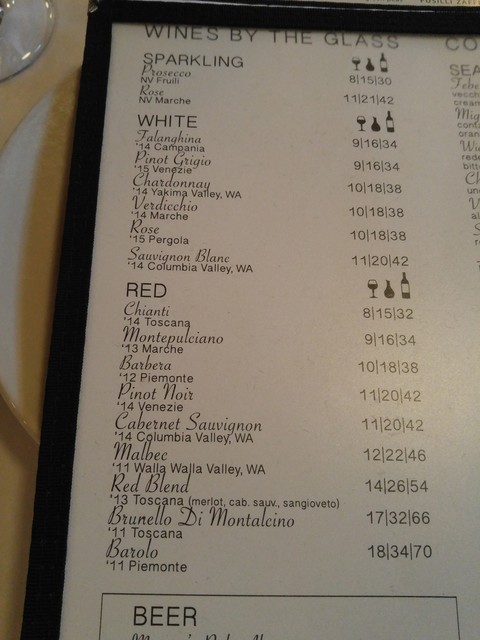 WINES BY THE GLASS
SPARKLING
Prosecco 8|15|30
NV Fruili
Rose 11|21|42
NV Marche
WHITE
Falanghina 9|16|34
'14 Campania
Pinot Grigio 9|16|34
'15 Venezie
Chardonnay 10|18|38
'14 Yakima Valley, WA
Verdicchio 10|18|38
'14 Marche
Rose 10|18|38
'15 Pergola
Sauvignon Blanc 11|20|42
'14 Columbia Valley, WA
RED
Chianti 8|15|32
'14 Toscana
Montepulciano 9|16|34
'13 Marche
Barbera 10|18|38
'12 Piemonte
Pinot Noir 11|20|42
'14 Venezie
Cabernet Sauvignon 11|20|42
'14 Columbia Valley, WA
Malbec 12|22|46
'11 Walla Walla Valley, WA
Red Blend 14|26|54
'13 Toscana (merlot, cab. sauv., sangioveto)
Brunello Di Montalcino 17|32|66
'11 Toscana
Barolo 18|34|70
'11 Piemonte
BEER